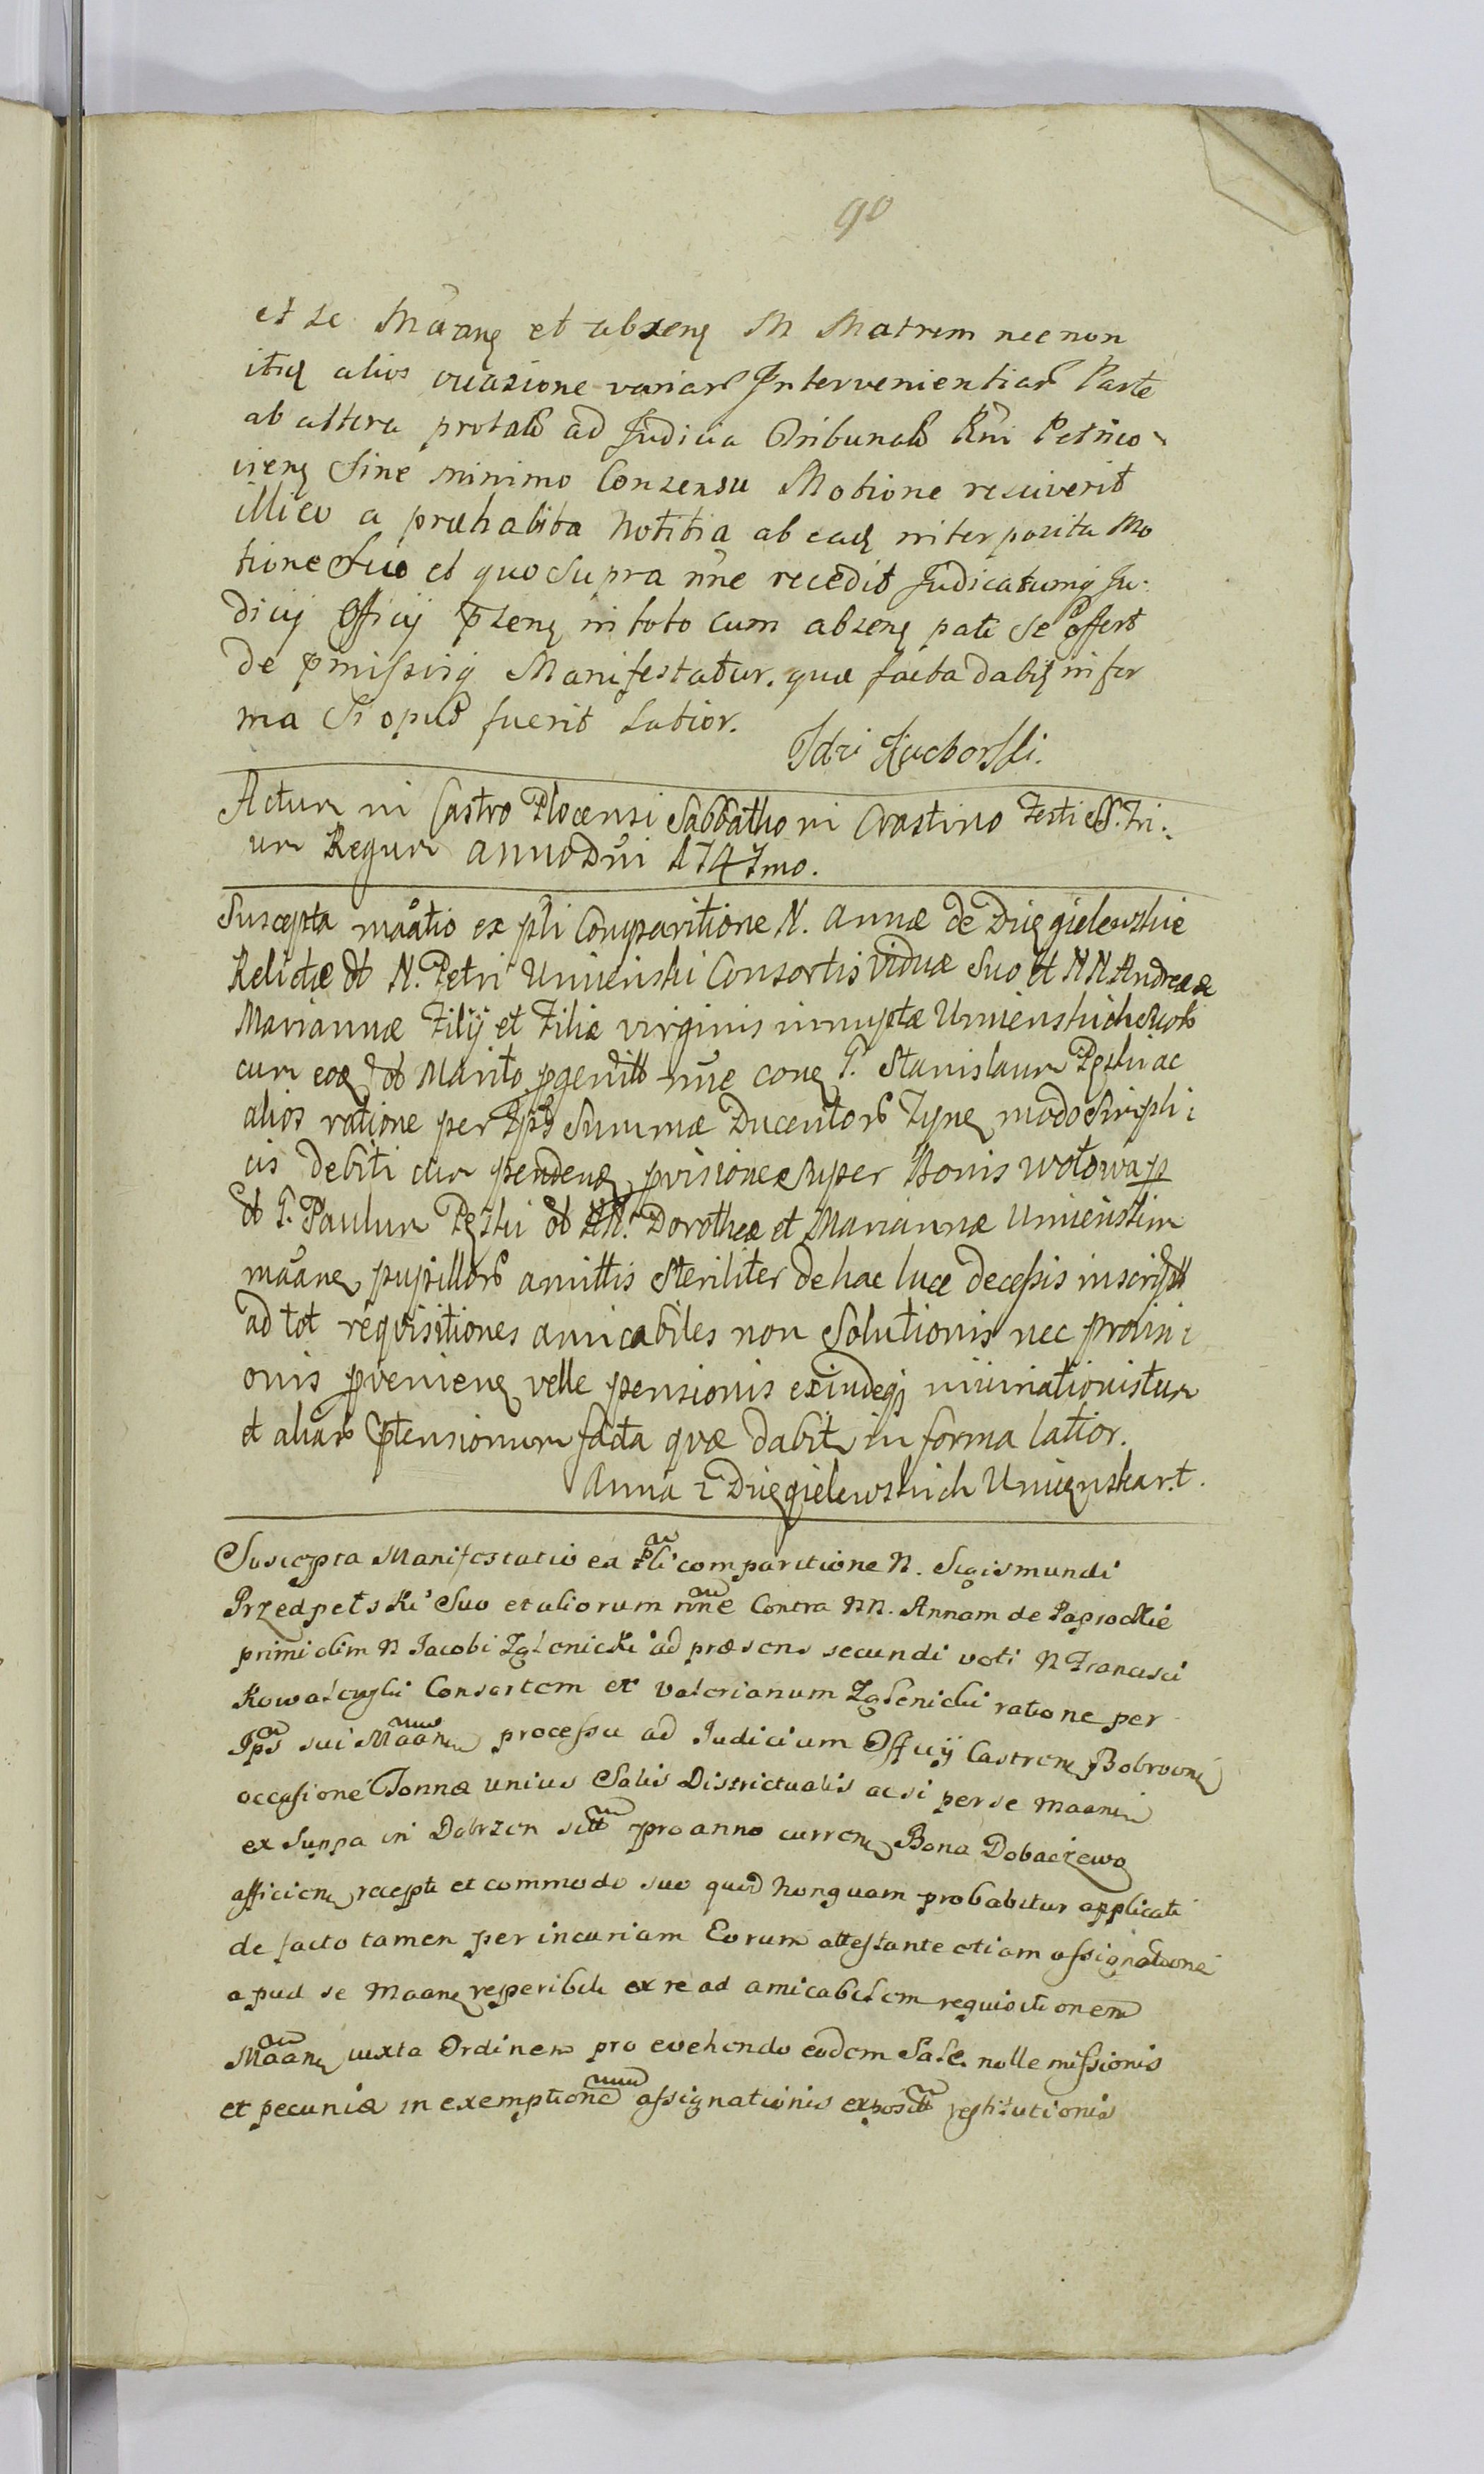 90
et se Maanę et absenę M Matrem nec non
itidę alios occasione variarum Intervenientiarum Parte
ab altera protali ad Judicia Tribunalis Rni Petrico-
vienę Sine minimo Consensu Motione resciverit
illico a præhabita Notitia ab eadę interposita Mo
tione Suo et quo supra nne recedit Judicatumq Ju-
dicij Officij pzenę in toto cum absenę pati se offert
de pmissisq Manifestatur. quæ facta dabitę in for
ma Si opus fuerit latior.
Actum in Castro Plocensi Sabbatho in Crastino Festi SS. Tri-
um Regum Anno Dni 1747mo.
Suscepta maatio ex pli Comparitione N. Annæ de Dziegielewskie
Relictæ ol N. Petri Unienski Consortis Viduæ Suo et NN Andreæ &
Mariannæ Filij et Filiæ virginis innuptæ Umienskich Suorum
cum eoę ol Marito pgenitor nne conę G. Stanislaum Pęski ac
alios ratione per Ipsos Summæ Ducentorum Tynę modo Simpli-
cis debiti cum pendenę pvisione Super Bonis Wotowa p
ol G. Paulum Pęski ol NN. Dorotheæ et Mariannæ Umienskim
maanę pupillorum amittis Steriliter de hac luce decessis inscript
ad tot requisitiones amicabiles non Solutionis nec provisi-
onis pvenienę velle pensionis exindeq ruinationistum
et aliarum Ptensionum facta quæ dabitę in forma latior.
Anna z Dziegielewskich Umięnska r.t.
Suscepta Manifestatio ex pli comparitione N. Sigismundi
Przedpełski Suo et aliorum nne Contra NN. Annam de Paprockie
primi olim N Jacobi Zglenicki ad præsens secundi voti N Francisci
Kowalewski Consortem et Valerianum Zglenicki ratione per
Ips sui Maanę processu ad Judicium Officij Castrenę Bobrovnę
occasione Tonnæ unius Salis Districtualis ac si per se maanę
ex Suppa in Dobrzen sitt pro anno currenę Bona Dobaczewo
afficienę recepti et commodo suo quod nonquam probabitur applicati
de facto tamen per incuriam Eorum attestante etiam assignatione
apud se Maanę reperibili ex re ad amicabilem requisitionem
Maanę iuxta Ordinem pro evehendo eodem Sale. nolle missionis
et pecuniæ in exemptione assignationis exposit restitutionis